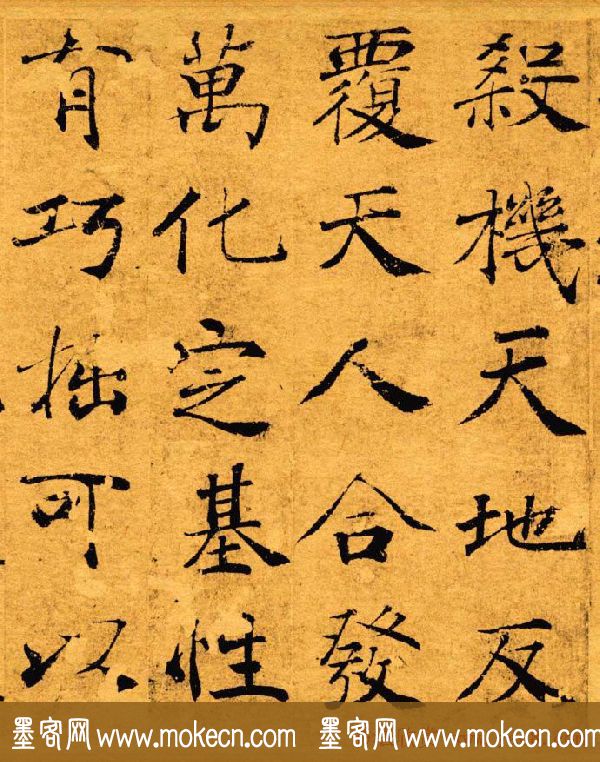 殺機天地反
覆天人合發
萬化定基性
有巧掘可以
墨客网 www.mokecn.com 墨客网 www.mokecn.com